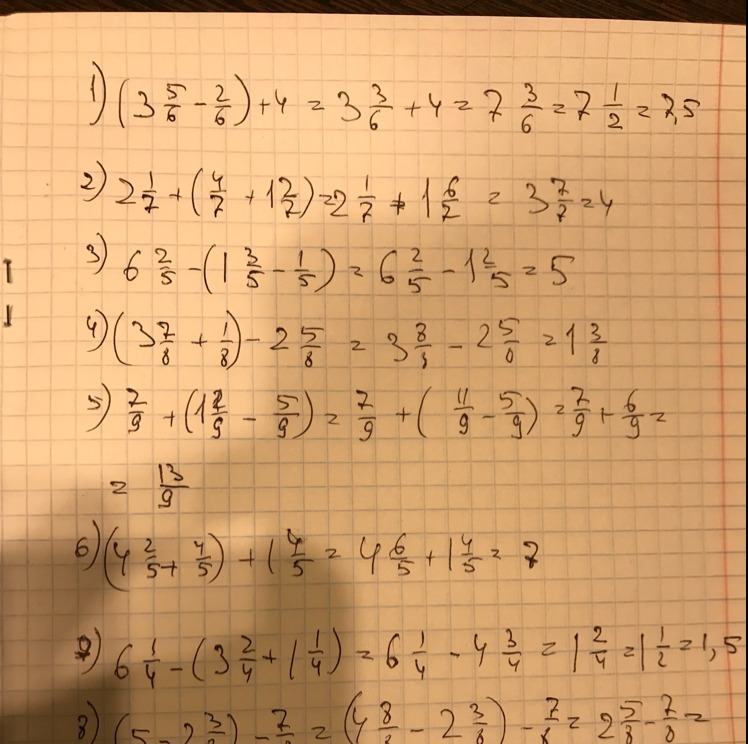 1) (3 5/6 - 2/6) + 4 = 3 3/6 + 4 = 7 3/6 = 7 1/2 = 7,5
2) 2 1/7 + (4/7 + 1 2/7) = 2 1/7 + 1 6/7 = 3 7/7 = 4
3) 6 2/5 - (1 3/5 - 1/5) = 6 2/5 - 1 2/5 = 5
4) (3 7/8 + 1/8) - 2 5/8 = 3 8/8 - 2 5/8 = 1 3/8
5) 7/9 + (1 2/9 - 5/9) = 7/9 + (11/9 - 5/9) = 7/9 + 6/9 =
= 13/9
6) (4 2/5 + 4/5) + 1 4/5 = 4 6/5 + 1 4/5 = 7
7) 6 1/4 - (3 2/4 + 1 1/4) = 6 1/4 - 4 3/4 = 1 2/4 = 1 1/2 = 1,5
8) (5 - 2 3/8) - 7/8 = (4 8/8 - 2 3/8) - 7/8 = 2 5/8 - 7/8 =